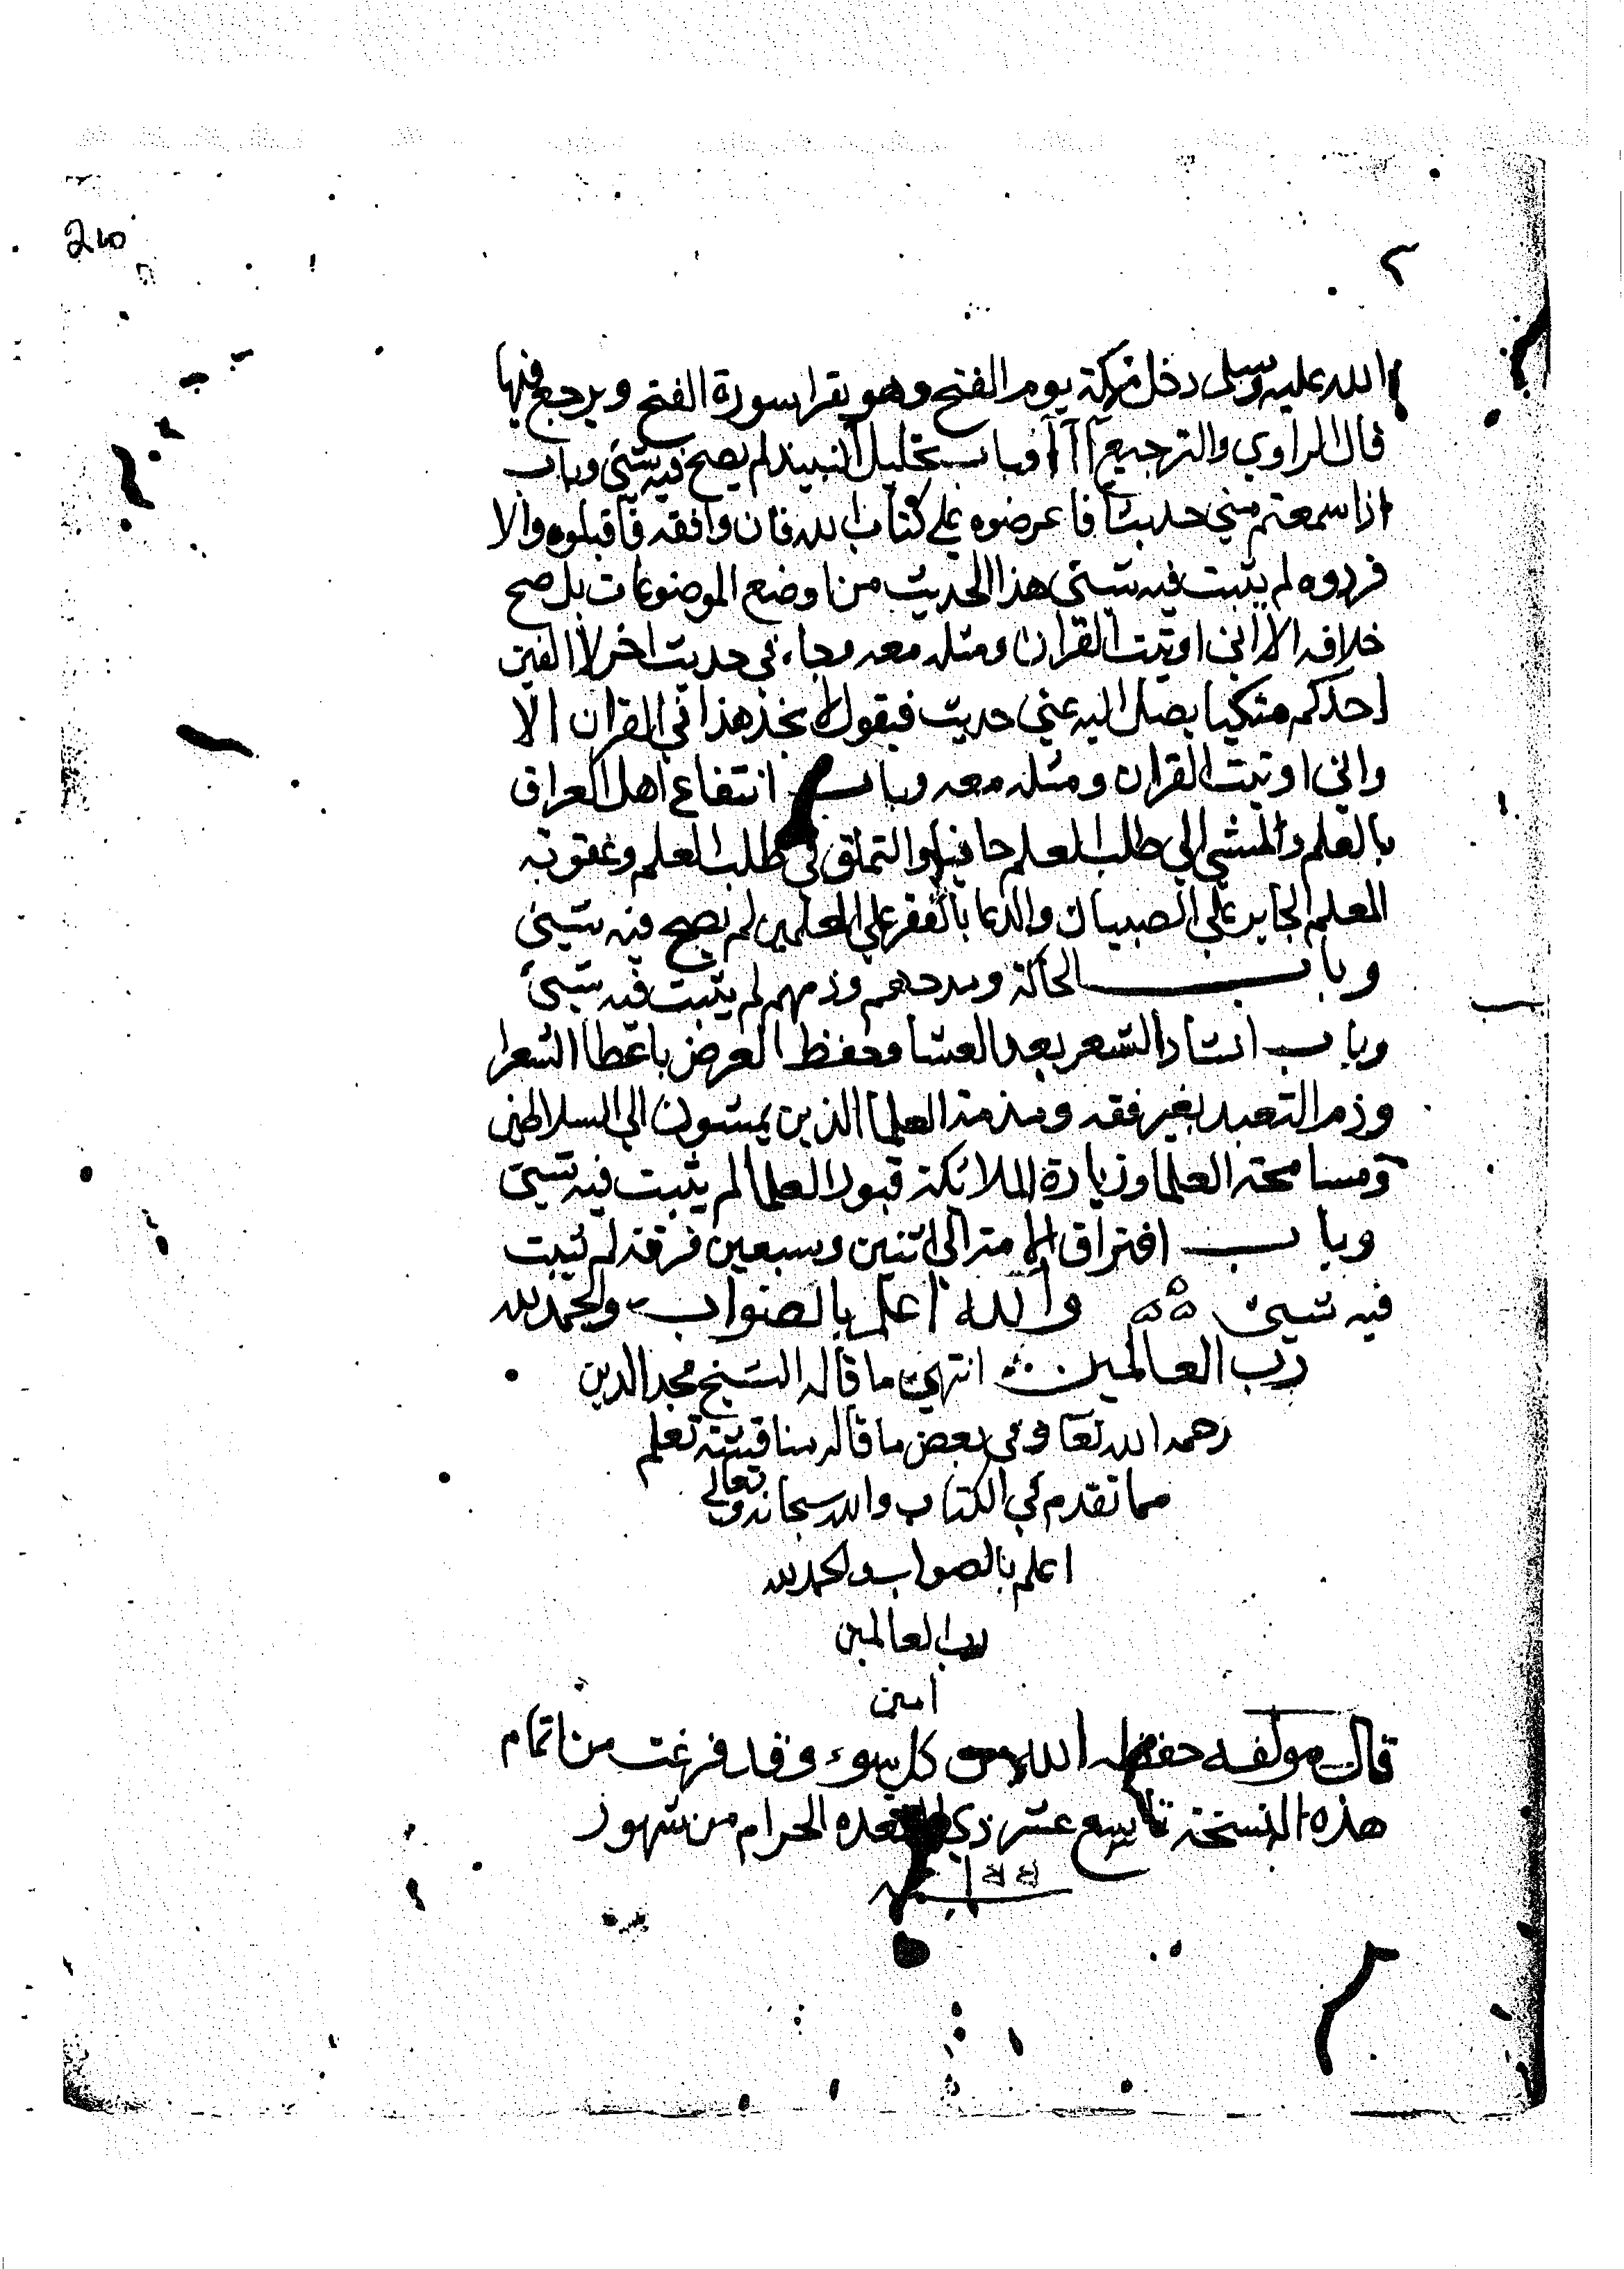 210
الله عليه وسلم دخل مكة يوم الفتح وهو يقرا سورة الفتح ويرجع فيها
قال الراوي والترجيع آ آ آ وباب تحليل النبيذ لم يصح فيه شيئ وباب
اذا سمعتم مني حديثا فاعرضوه علي كتاب الله فان وافقه فاقبلوه والا
فردوه لم يثبت فيه شيئ هذا الحديث من اوضع الموضوعات بل صح
خلافه الا اني اوتيت القران ومثله معه وجاء في حديث اخر لا الفين
احدكم متكيا يصل اليه عني حديث فيقول لا نجد هذا في القران الا
واني اوتيت القران ومثله معه وباب انتفاع اهل العراق
بالعلم والمشي الي طلب العلم حافيا والتملق في طلب العلم وعقوبة
المعلم الجاير علي الصبيان والدعا بالفقر علي المعلمين لم يصح فيه شيئ
وباب الحاكة ومدحهم وذمهم لم يثبت فيه شيئ
وباب انشاد الشعر بعد العشا وحفظ العرض باعطا الشعرا
وذم التعبد بغير فقه ومذمة العلما الذين يمشون الي السلاطين
ومسامحة العلما وزيارة الملائكة قبور العلما لم يثبت فيه شيئ
وباب افتراق الامة الي اثنين وسبعين فرقة لم يثبت
فيه شيئ والله اعلم بالصواب والحمد لله
رب العالمين انتهي ما قاله الشيخ مجد الدين
رحمه الله تعا وفي بعض ما قاله مناقشة تعلم
مما تقدم في الكتاب والله سبحانه وتعالي
اعلم بالصواب والحمد لله
رب العالمين
امين
قال مولفه حفظه الله من كل سوء وقد فرغت من اتمام
هذه النسخة تاسع عشر ذي القعده الحرام من شهور